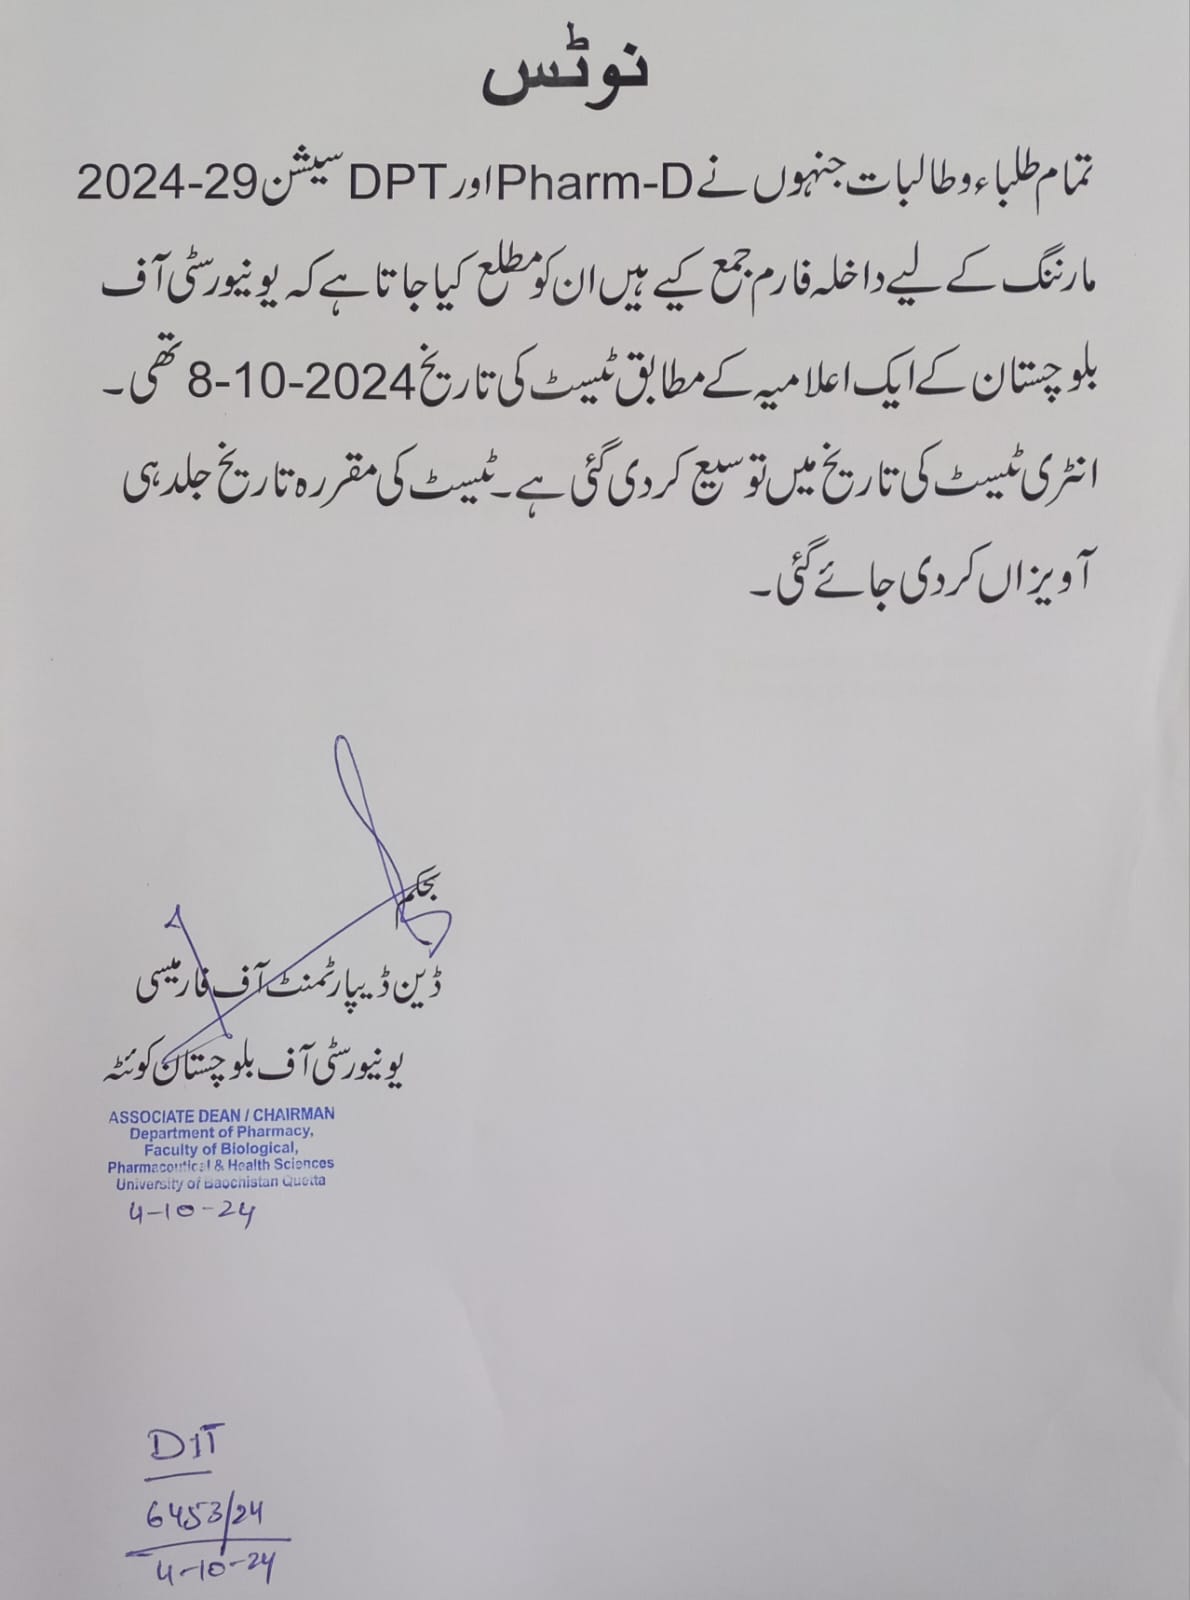 نوٹس
تمام طلباء و طالبات جنہوں نے Pharm-D اور DPT سیشن 2024-29
مارننگ کے لیے داخلہ فارم جمع کیے ہیں ان کو مطلع کیا جاتا ہے کہ یونیورسٹی آف
بلوچستان کے ایک اعلامیہ کے مطابق ٹیسٹ کی تاریخ 8-10-2024 تھی۔
انٹری ٹیسٹ کی تاریخ میں توسیع کر دی گئی ہے۔ ٹیسٹ کی مقررہ تاریخ جلد ہی
آویزاں کر دی جائے گئی۔
بحکم
ڈین ڈیپارٹمنٹ آف فارمیسی
یونیورسٹی آف بلوچستان کوئٹہ
ASSOCIATE DEAN / CHAIRMAN
Department of Pharmacy,
Faculty of Biological,
Pharmaceutical & Health Sciences
University of Baochistan Quetta
4-10-24
DIT
6453/24
4-10-24